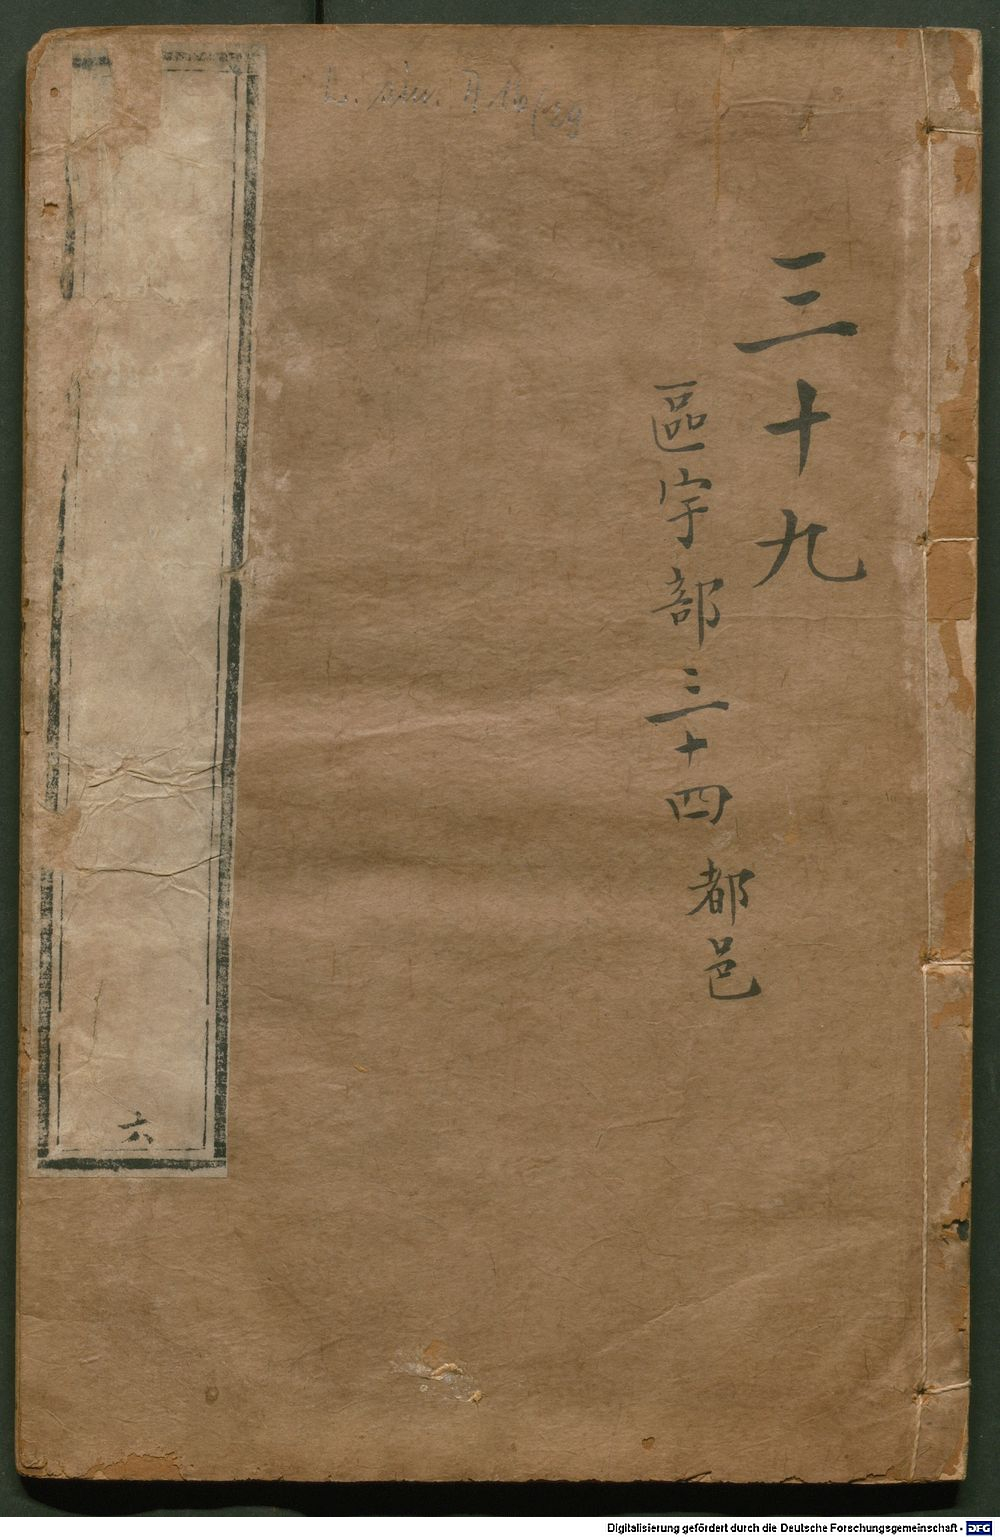 三十九
區宇部三十四 都邑
六
L. sin. A.
Digitalisierung gefördert durch die Deutsche Forschungsgemeinschaft - DFG